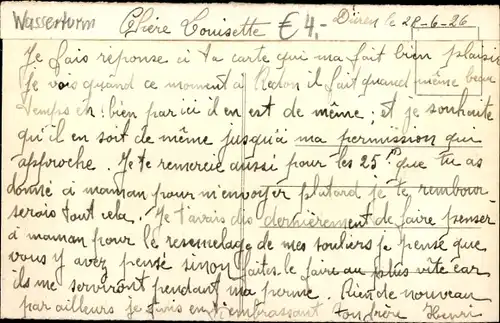 Wasserturm Chère Louisette €4,- Düren le 28-6-26
Je fais réponse à ta carte qui ma fait bien plaisir
Je vois quand ce moment à Redon il fait quand même beau
temps eh! bien par ici il en est de même; et je souhaite
qu'il en soit de même jusqu'à ma permission qui
approche. Je te remercie aussi pour les 25 que tu as
donné à maman pour m'envoyer plutard je te rembour
serais tout cela. Je t'avais dis dernièrement de faire penser
à maman pour le resemelage de mes souliers je pense que
vous y avez pensé sinon faites le faire au plus vite car
ils me serviront pendant ma perme. Rien de nouveau
par ailleurs je finis en t'embrassant Henri